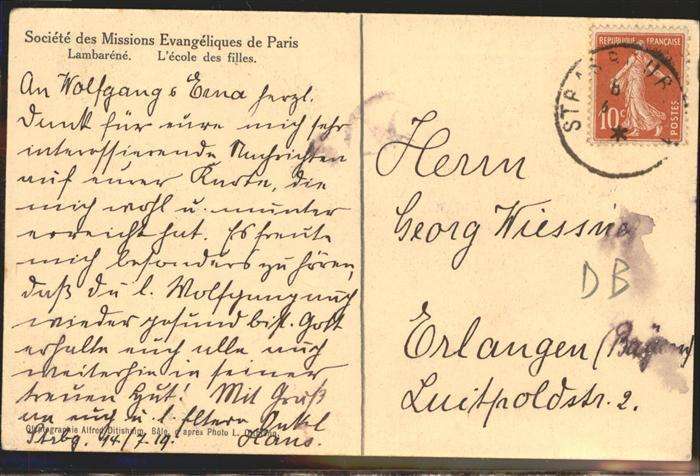 Société des Missions Evangéliques de Paris
Lambaréné. L'école des filles.
An Wolfgang & Erna herzl.
Dank für eure mich sehr
interessierende Nachrichten
auf eurer Karte, die
mich wohl u. munter
erreicht hat. Es freute
mich besonders zu hören,
daß du l. Wolfgang auch
wieder gesund bist. Gott
erhalte euch alle auch
weiterhin in seiner
treuen Hut! Mit Gruß
an euch u. l. Eltern Onkel
Strbg. 14/7.19. Hans.
Alfred Ditisheim, Bâle, d'après Photo L.
REPUBLIQUE FRANÇAISE
10c
POSTES
STRASBOUR
Herrn
Georg Wiessner
DB
Erlangen (Bayern)
Luitpoldstr. 2.